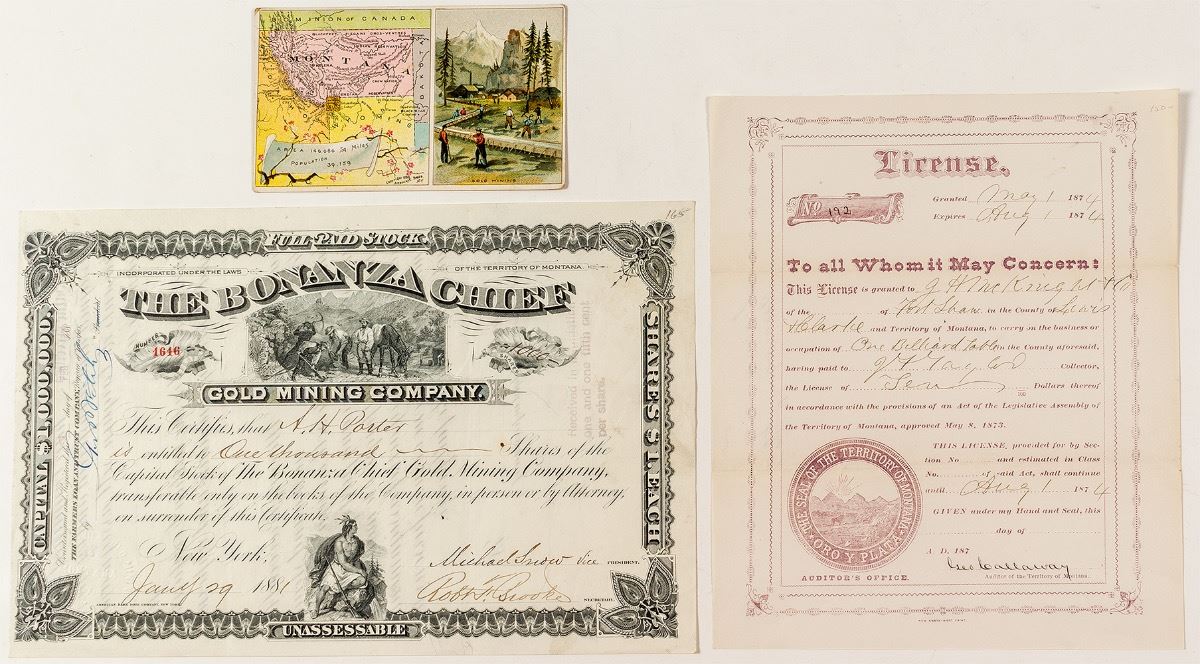 DOMINION OF CANADA
MONTANA
DAKOTA
AREA 146,086 Sq Miles
POPULATION 39,159
GOLD MINING
165-
FULL PAID STOCK
INCORPORATED UNDER THE LAWS OF THE TERRITORY OF MONTANA
THE BONANZA CHIEF
NUMBER 1616
1000
GOLD MINING COMPANY.
CAPITAL $1,000,000.
SHARES $1 EACH
This Certifies, that A. H. Porter
is entitled to One thousand Shares of the
Capital Stock of The Bonanza Chief Gold Mining Company,
transferable only on the books of the Company, in person or by Attorney,
on surrender of this Certificate.
New York,
Michael Snow vice PRESIDENT.
Jany 29 1881
SECRETARY.
AMERICAN BANK NOTE COMPANY, NEW YORK.
UNASSESSABLE
THE FARMERS LOAN AND TRUST COMPANY
Received
one and one fifth cent
per share.
150-
License.
No 192
Granted May 1 1874
Expires Aug 1 1874
To all Whom it May Concern:
This License is granted to J H McKnight & Co
of the of Fort Shaw in the County of Lewis
& Clarke and Territory of Montana, to carry on the business or
occupation of One Billiard table in the County aforesaid,
having paid to Taylor Collector,
the License of Ten Dollars thereof
100
in accordance with the provisions of an Act of the Legislative Assembly of
the Territory of Montana, approved May 8, 1873.
THIS LICENSE, provided for by Sec-
tion No and estimated in Class
No. of said Act, shall continue
until Aug 1 1874
GIVEN under my Hand and Seal, this
day of
A. D. 187
Geo Callaway
Auditor of the Territory of Montana.
THE SEAL OF THE TERRITORY OF MONTANA
ORO Y PLATA
AUDITOR'S OFFICE.